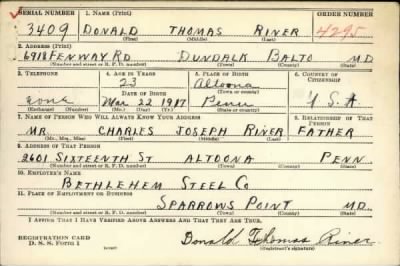 SERIAL NUMBER 1. NAME (Print) ORDER NUMBER
3409 DONALD THOMAS RINER 4295
(First) (Middle) (Last)
2. ADDRESS (Print)
6918 FENWAY RD DUNDALK BALTO MD.
(Number and street or R. F. D. number) (Town) (County) (State)
3. TELEPHONE 4. AGE IN YEARS 5. PLACE OF BIRTH 6. COUNTRY OF CITIZENSHIP
23 Altoona
DATE OF BIRTH (Town or county)
none Mar 22 1917 Penn U.S.A.
(Exchange) (Number) (Mo.) (Day) (Yr.) (State or country)
7. NAME OF PERSON WHO WILL ALWAYS KNOW YOUR ADDRESS 8. RELATIONSHIP OF THAT PERSON
MR. CHARLES JOSEPH RINER FATHER
(Mr., Mrs., Miss) (First) (Middle) (Last)
9. ADDRESS OF THAT PERSON
2601 SIXTEENTH ST ALTOONA PENN
(Number and street or R. F. D. number) (Town) (County) (State)
10. EMPLOYER'S NAME
BETHLEHEM STEEL CO
11. PLACE OF EMPLOYMENT OR BUSINESS
SPARROWS POINT MD.
(Number and street or R. F. D. number) (Town) (County) (State)
I AFFIRM THAT I HAVE VERIFIED ABOVE ANSWERS AND THAT THEY ARE TRUE.
REGISTRATION CARD
D. S. S. FORM 1 Donald Thomas Riner
(Registrant's signature)